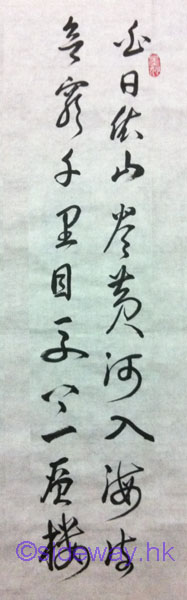 白日依山盡黃河入海流
欲窮千里目更上一層樓
©sideway.hk